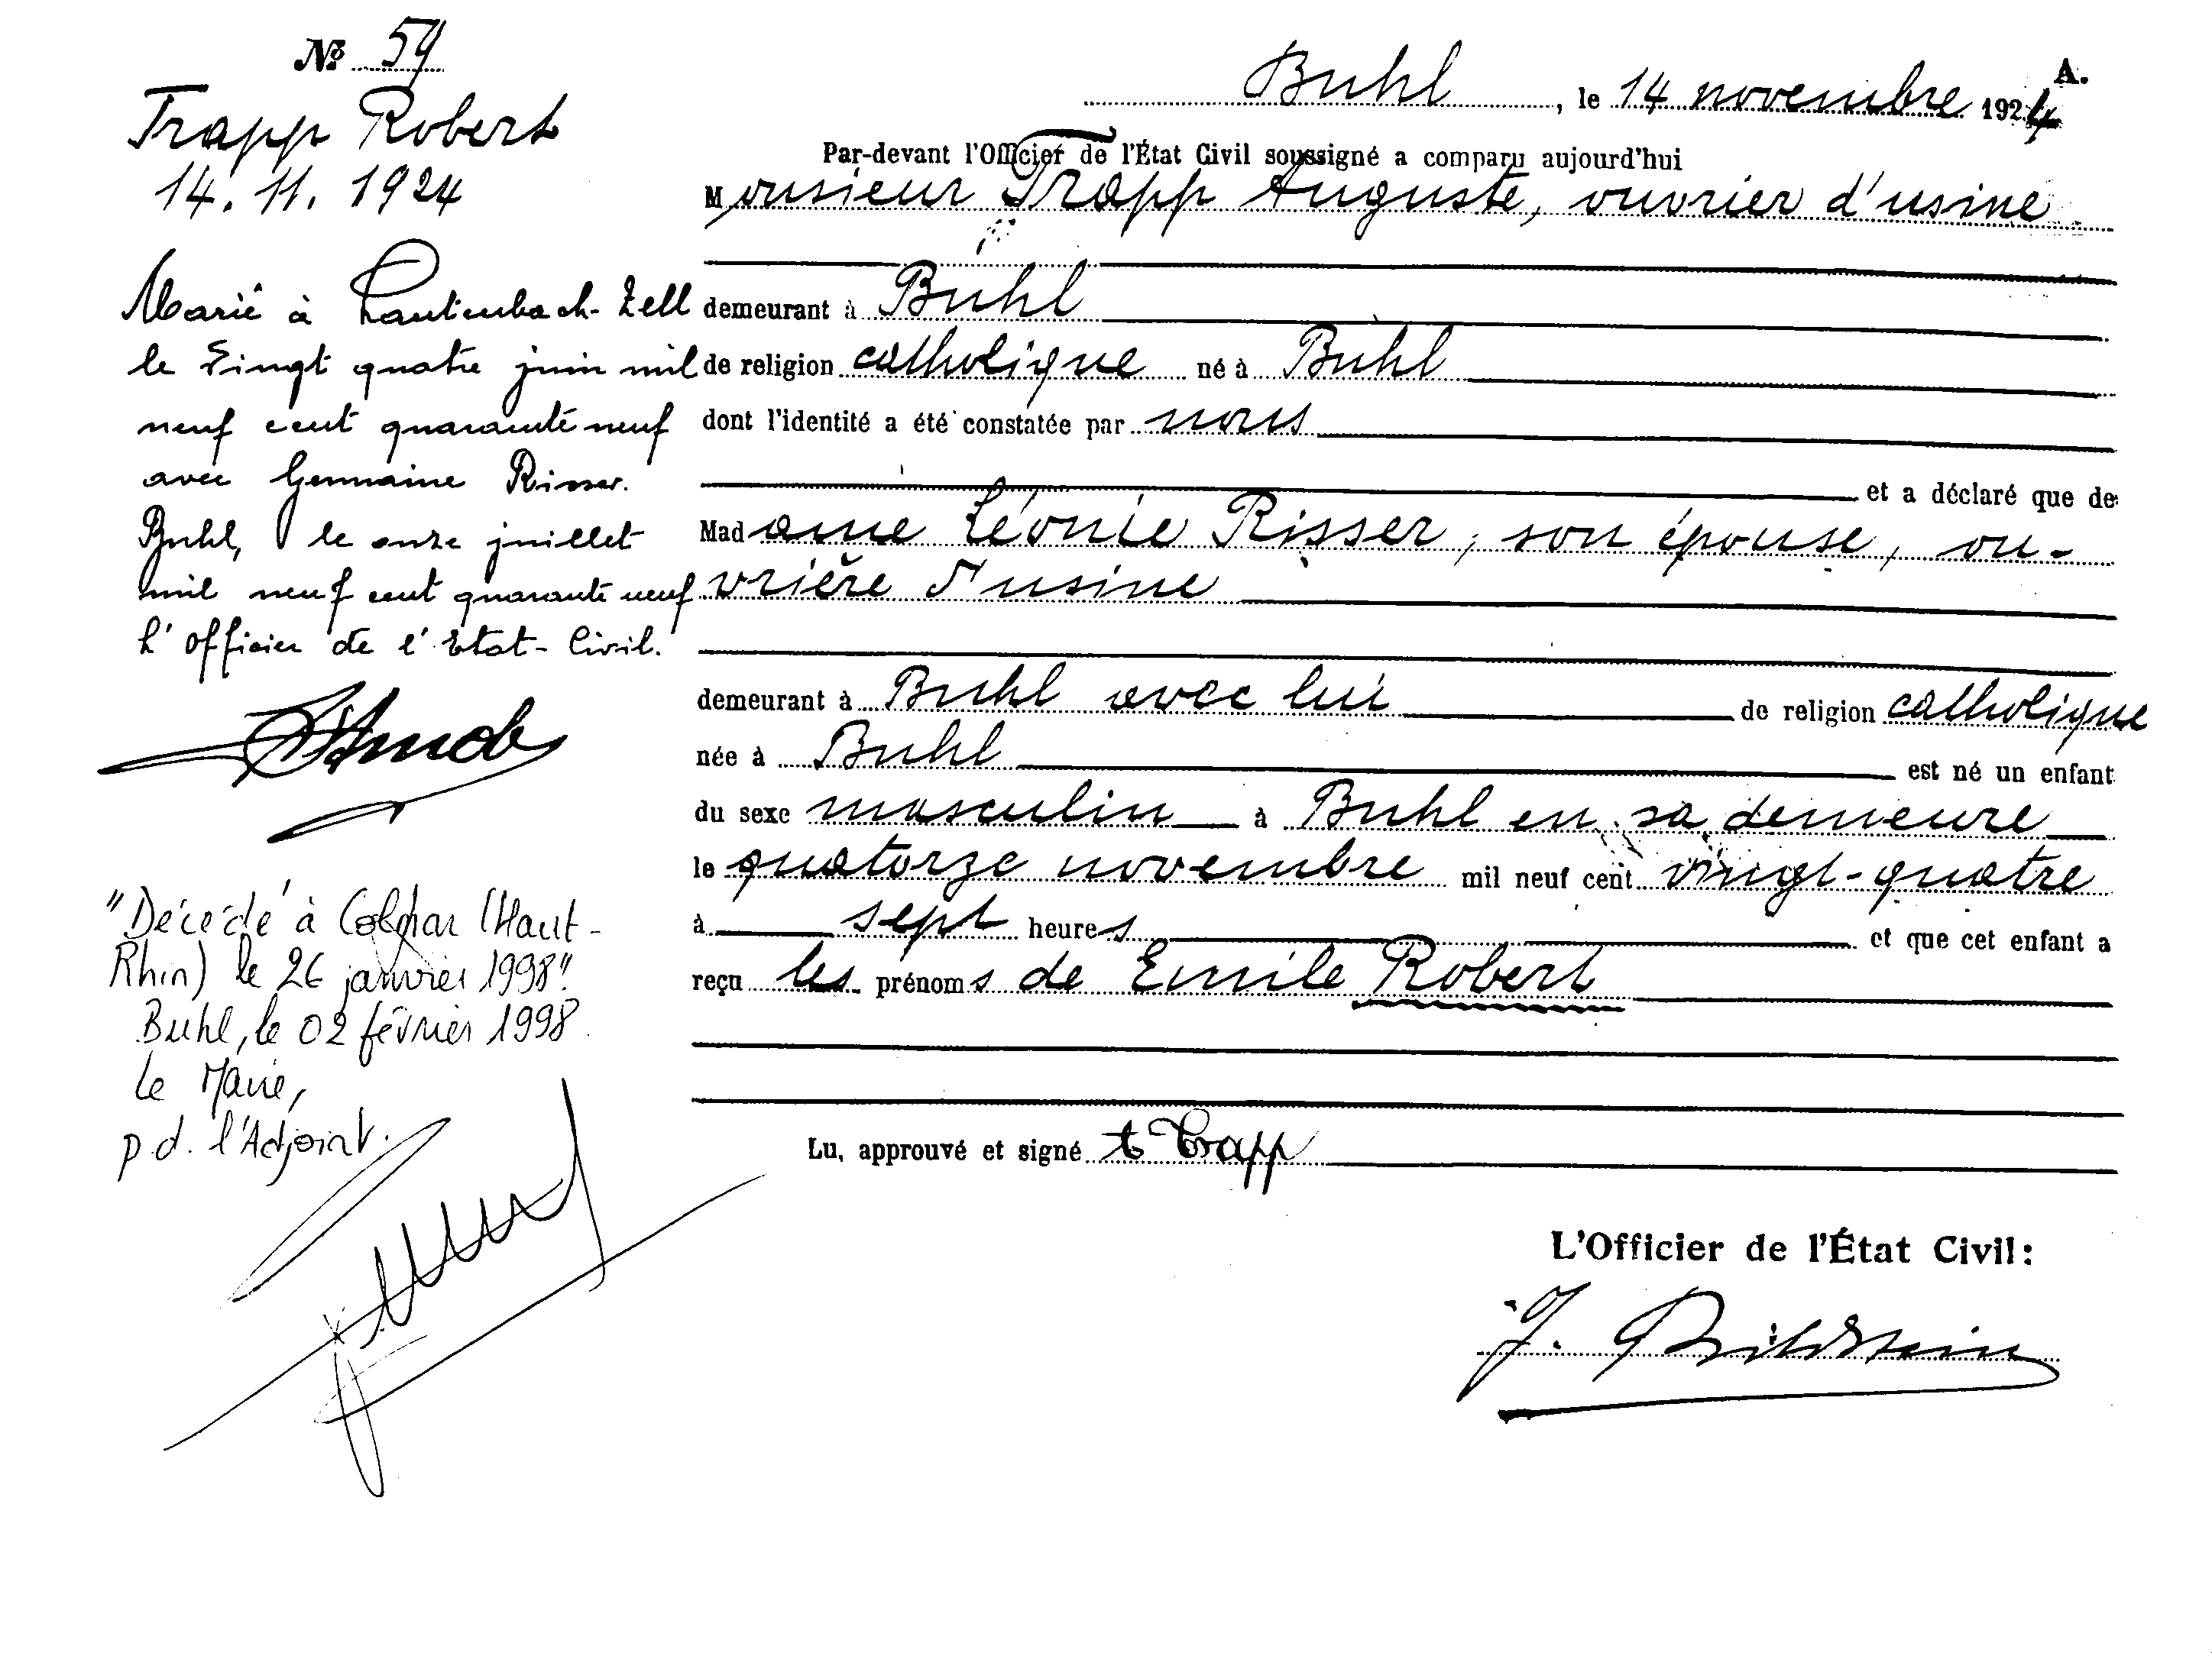 Nº 59
Trapp Robert
14. 11. 1924
Marié à Lautenbach-Zell
le vingt quatre juin mil
neuf cent quarante neuf
avec Germaine Risser.
Buhl, le onze juillet
mil neuf cent quarante neuf
L'officier de l'Etat-Civil.
"Décédé à Colmar (Haut-
Rhin) le 26 janvier 1998".
Buhl, le 02 février 1998.
Le Maire,
p.d. l'Adjoint.
A.
Buhl, le 14 novembre 1924
Par-devant l'Officier de l'État Civil soussigné a comparu aujourd'hui
Monsieur Trapp Auguste, ouvrier d'usine
demeurant à Buhl
de religion catholique né à Buhl
dont l'identité a été constatée par nous
et a déclaré que de
Madame Léonie Risser, son épouse, ou-
vrière d'usine
demeurant à Buhl avec lui de religion catholique
née à Buhl est né un enfant
du sexe masculin à Buhl en sa demeure
le quatorze novembre mil neuf cent vingt-quatre
à sept heures et que cet enfant a
reçu les prénoms de Emile Robert
Lu, approuvé et signé Trapp
L'Officier de l'État Civil:
J. Bildstein